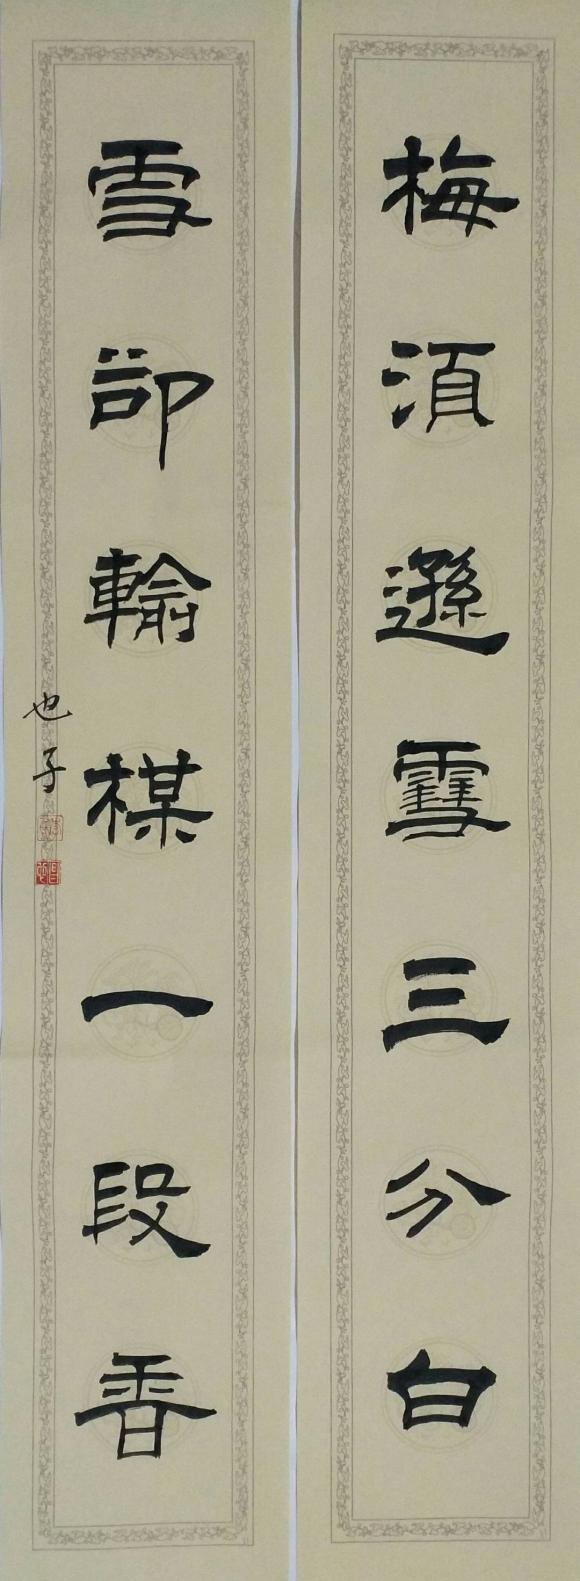 梅須遜雪三分白
雪卻輸楳一段香
也子